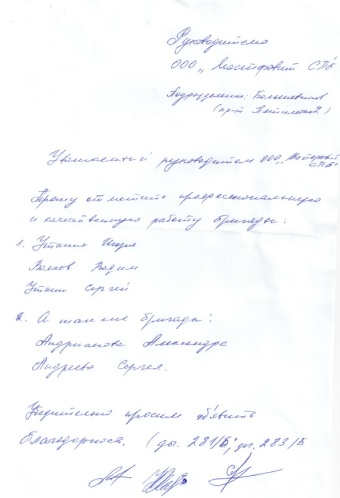 Руководителю
ООО „Мосторовит СПб
Подразделение: Большевиков
(пр-т
Уважаемый руководитель ООО „Мосторовит СПб"
Прошу отметить профессиональную
и качественную работу бригады:
1. Уткина Игоря
Волков Вадим
Уткин Сергей
2. А также бригады:
Андрианова Александра
Андреева Сергея.
Убедительно просим объявить
благодарность. (дом 281/Б, дм. 283/Б